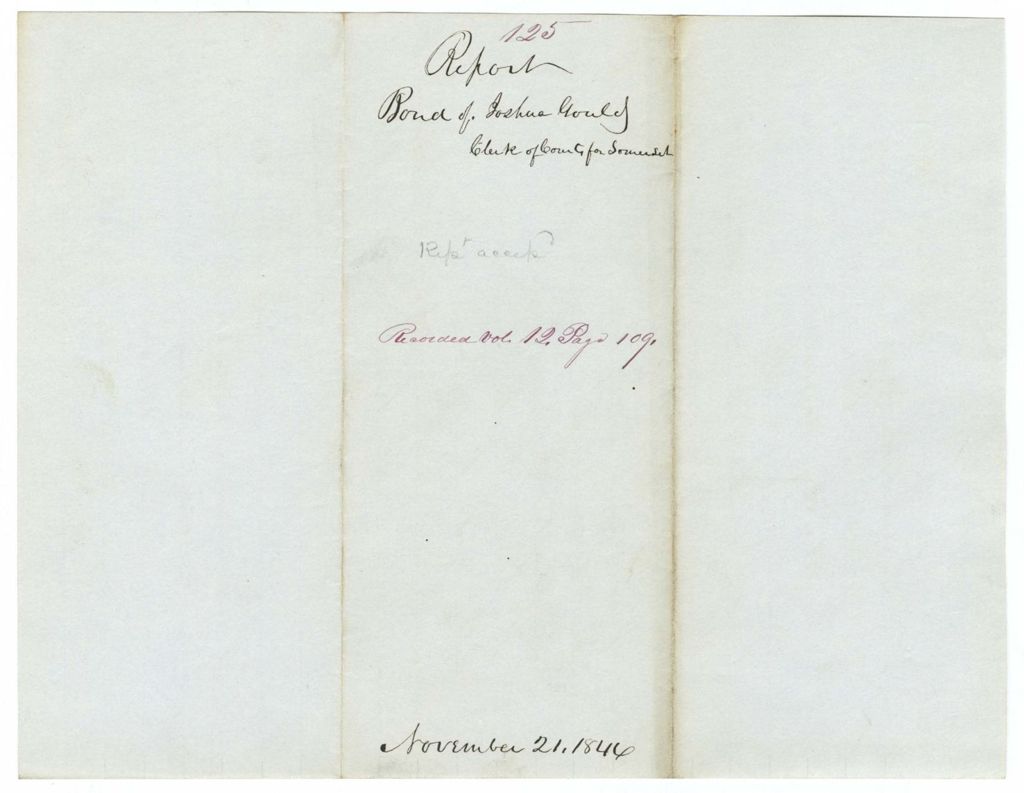 125
Report
Bond of Joshua Gould
Clerk of Courts for Somerset
Rep't accep'
Recorded Vol. 12, Page 109.
November 21, 1846